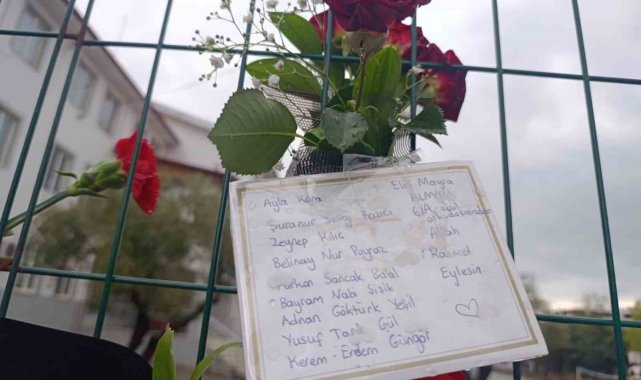 Ayla Kara
Şuranur Sevgi Kazıcı
Zeynep Kılıç
Belinay Nur Poyraz
Furkan Sancak Balal
Bayram Nabi Şişik
Adnan Göktürk Yeşil
Yusuf Tarık Gül
Kerem Erdem Güngör
Elif Meyra
6/A okul
arkadaşlarından
Allah
Rahmet
Eylesin